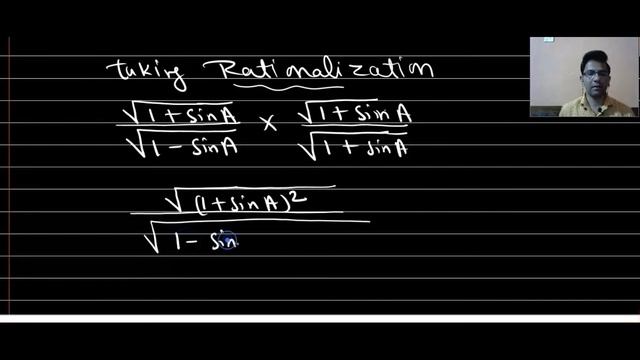 taking Rationalization
√1+sinA / √1-sinA × √1+sinA / √1+sinA
√(1+sinA)² / √1-sin